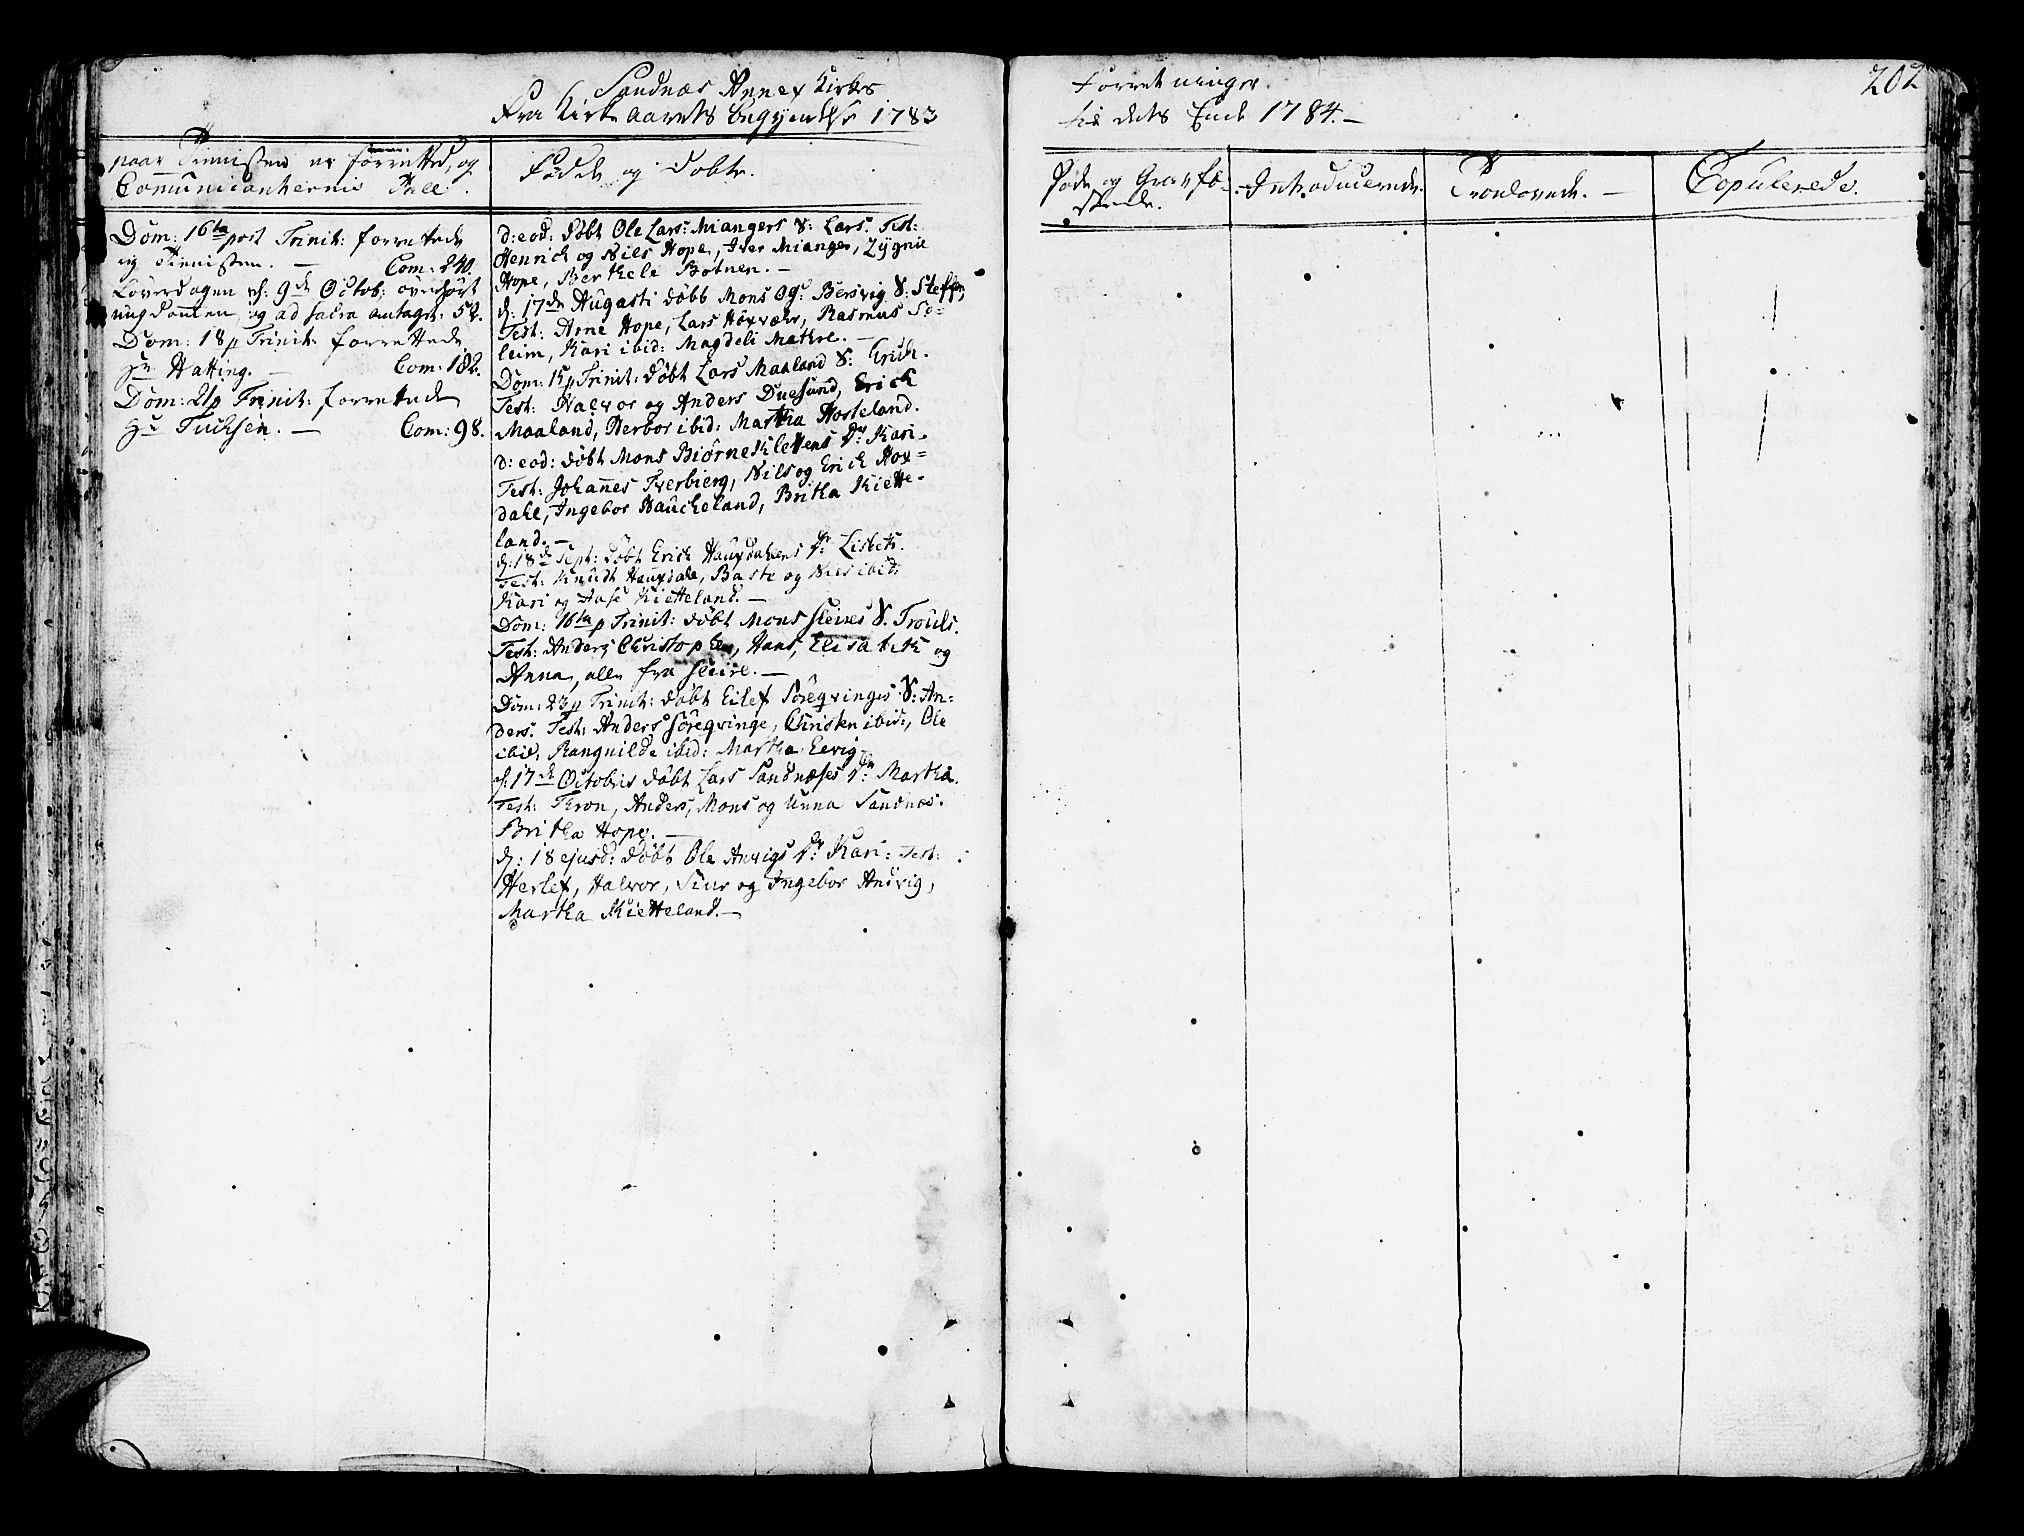 Sandnæs Annex Kirkes
Fra Kirke aarets begyendelse 1783
Forretninger
til dets Ende 1784.-
202
naar Tienisten er forretted, og
Comunicanternis Tall.
Fødde og døbte.
Døde og Grav fæ-
stede.
Introducerede.
Troelovede. -
Copulerede.
Dom: 16ta post Trinit: forrettede
ieg Tienisten. - Com: 240.
Løverdagen d. 9de Octob: overhørt
ungdomen, og ad salva antagne: 52.
Dom: 18 p Trinit: forrettede
Hr Hatting. - Com: 182.
Dom: 21 p Trinit: forrettede
Hr Tuchsen. - Com: 98.
d: eod: døbt Ole Lars: Miangers S: Lars. Test:
Henrich og Niels Hope, Iver Mianger, Zygnie
Hope, Berthele Botnen. -
d: 17de Augusti døbb Mons Og: Bersvig S: Steffen,
Test: Arne Hope, Lars Høyvahr, Rasmus So-
leim, Kari ibid: Magdeli Matre. -
Dom: 15 p Trinit: døbt Lars Maaland S: Erich.
Test: Halvor og Anders Duesund, Erich
Maaland, Herbor ibid: Martha Hosteland.
d: eod: døbt Mons Biørneklettens Dr: Kari.
Test: Johannes Tverbierg, Nils og Erich Hox-
dahl, Ingebor Haucheland, Britha Kiette-
land. -
d: 18de Sept: døbt Erich Hauxdahlens Dr: Lisbeth.
Test: Knudt Hauxdale, Baste og Niels ibid:
Kari og Aase Kietteland. -
Dom: 16ta p Trinit: døbt Mons Sleires S. Trouls.
Test: Anders, Christopher, Hans, Elisabeth og
Anna, alle fra Sleire. -
Dom: 23 p Trinit: døbt Eilef Søreqvinges S: An-
ders. Test: Anders Søreqvinge, Christen ibid:, Ole
ibid, Rangnilde ibid: Martha Eevig -
d: 17de Octobris døbt Lars Sandnæses Dr: Martha.
Test: Thron, Anders, Mons og Unna Sandnæs.
Britha Hope. -
d: 18 ejusd: døbt Ole Anvigs Dr: Kari: Test:
Herlef, Halvor, Siur og Ingebor Andvig,
Martha Kietteland. -